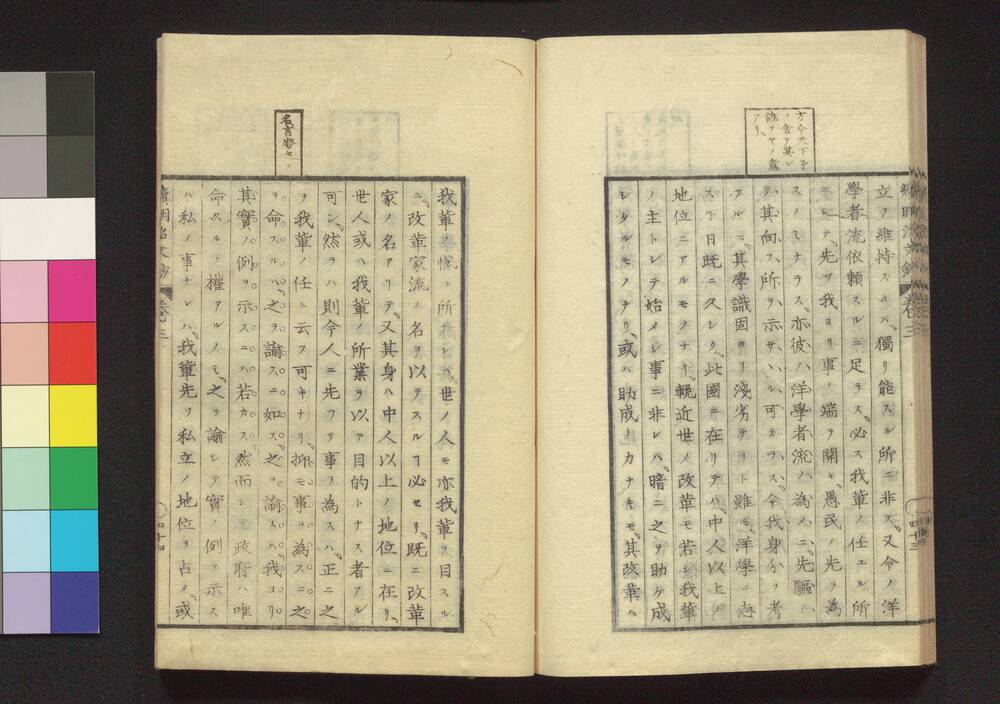 方今天下予
ヲ舎テ其レ
誰ソヤノ意
アリ
立ヲ維持スルハ獨リ能スル所ニ非ス又今ノ洋
學者流依頼スルニ足ラス必ス我輩ノ任ユル所
ニシテ先ツ我ヨリ事ノ端ヲ開キ愚民ノ先ヲ為
スノミナラス亦彼ハ洋學者流ハ為メニ先驅シ
其向フ所ヲ示サヽル可カラス今我身分ヲ考
フルニ其學識固ヨリ淺劣ナリト雖モ洋學ニ志
スヿ日既ニ久シク此國ニ在リテハ中人以上ノ
地位ニアルモノナリ輓近世ノ改革モ若シ我輩
ノ主トシテ始メシ事ニ非レハ暗ニ之ヲ助ケ成
シタルモノナリ或ハ助成ノカナキモ其改革ハ
四十三
名言察セヨ
我輩ノ悦フ所ナレハ世ノ人モ亦我輩ヲ目スル
ニ改革家流ノ名ヲ以テスルヿ必セリ既ニ改革
家ノ名アリテ又其身ハ中人以上ノ地位ニ在リ
世人或ハ我輩ノ所業ヲ以テ目的トナス者アル
可シ然ラハ則今人ニ先ツテ事ヲ為スハ正ニ之
ヲ我輩ノ任ト云フ可キナリ抑モ事ヲ為スニ之
ヲ命スルハ之ヲ諭スニ如ス之ヲ諭スハ我ヨリ
其實ノ例ヲ示スニハ若カス然而シテ政府ハ唯
命スルノ權アルノミ之ヲ諭シテ實ノ例ヲ示ス
ハ私ノ事ナレハ我輩先ツ私立ノ地位ヲ占メ或
卷三
四十四